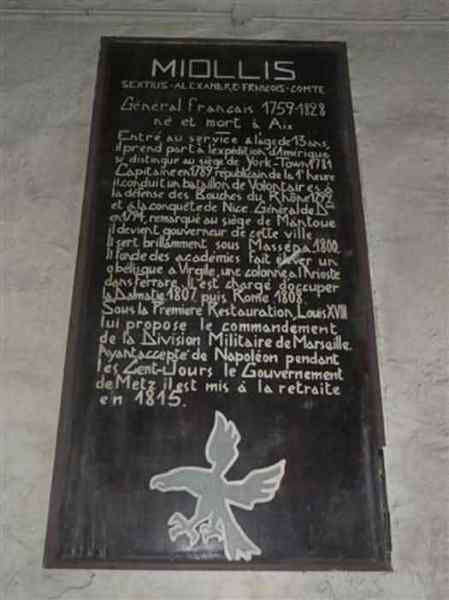 MIOLLIS
SEXTIUS-ALEXANDRE-FRANÇOIS-COMTE
Général Francais 1759-1828
né et mort à Aix
Entré au service à l'age de 13 ans,
il prend part à l'expédition d'Amérique
se distingue au siège de York-Town 1781
Capitaine en 1789 républicain de la 1e heure
il conduit un bataillon de Volontaires à
la défense des Bouches du Rhône 1792
et à la conquête de Nice. Général de Don
en 1794, remarqué au siège de Mantoue
il devient gouverneur de cette ville
Il sert brillamment sous Masséna 1800
Il fonde des académies fait élever un
obélisque à Virgile, une colonne à l'Arioste
dans ferrare. Il est chargé d'occuper
la Dalmatie 1807 puis Rome 1808.
Sous la Première Restauration, Louis XVIII
lui propose le commandement
de la Division Militaire de Marseille
Ayant accepté de Napoléon pendant
les Cent-Jours le Gouvernement
de Metz il est mis à la retraite
en 1815.